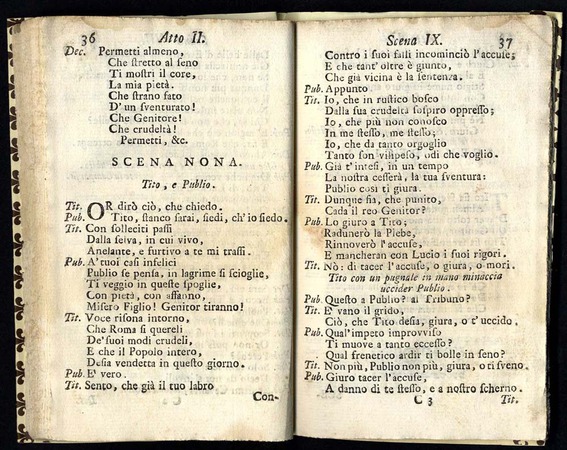 36 Atto II.
Dec. Permetti almeno,
Che stretto al seno
Ti mostri il core,
La mia pietà.
Che strano fato
D'un sventurato!
Che Genitore!
Che crudeltà!
Permetti, &c.
SCENA NONA.
Tito, e Publio.
Tit. OR dirò ciò, che chiedo.
Pub. Tito, stanco sarai, siedi, ch'io siedo.
Tit. Con solleciti passi
Dalla selva, in cui vivo,
Anelante, e furtivo a te mi trassi.
Pub. A' tuoi casi infelici
Publio se pensa, in lagrime si scioglie,
Ti veggio in queste spoglie,
Con pietà, con affanno,
Misero Figlio! Genitor tiranno!
Tit. Voce risona intorno,
Che Roma si quereli
De' suoi modi crudeli,
E che il Popolo intero,
Desia vendetta in questo giorno.
Pub. E' vero.
Tit. Sento, che già il tuo labro
Con-
Scena IX. 37
Contro i suoi falli incominciò l'accuse;
E che tant'oltre è giunto,
Che già vicina è la sentenza.
Pub. Appunto.
Tit. Io, che in rustico bosco
Dalla sua crudeltà sospiro oppresso;
Io, che più non conosco
In me stesso, me stesso;
Io, che da tanto orgoglio
Tanto son vilipeso, odi che voglio.
Pub. Già t'intesi, in un tempo
La nostra cesserà, la tua sventura:
Publio così ti giura.
Tit. Dunque sia, punito,
Cada il reo Genitor?
Pub. Lo giuro a Tito;
Radunerò la Plebe,
Rinnoverò l'accuse,
E mancheran con Lucio i suoi rigori.
Tit. Nò: di tacer l'accuse, o giura, o mori.
Tito con un pugnale in mano minaccia
uccider Publio.
Pub. Questo a Publio? al Tribuno?
Tit. E' vano il grido,
Ciò, che Tito desia, giura, o t'uccido.
Pub. Qual'impeto improvviso
Ti muove a tanto eccesso?
Qual frenetico ardir ti bolle in seno?
Tit. Non più, Publio non più, giura, o ti sveno.
Pub. Giuro tacer l'accuse,
A danno di te stesso, e a nostro scherno.
C 3 Tit.